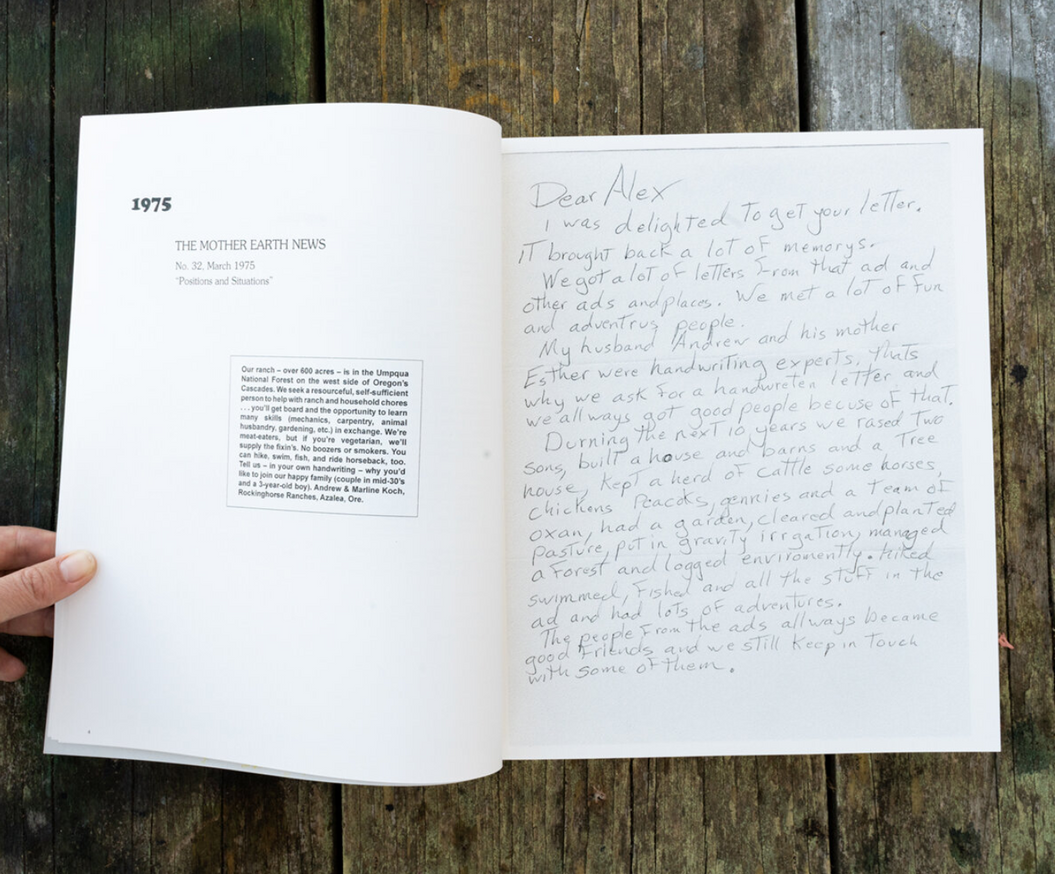 1975
THE MOTHER EARTH NEWS
No. 32, March 1975
“Positions and Situations”
Our ranch – over 600 acres – is in the Umpqua
National Forest on the west side of Oregon’s
Cascades. We seek a resourceful, self-sufficient
person to help with ranch and household chores
. . . you’ll get board and the opportunity to learn
many skills (mechanics, carpentry, animal
husbandry, gardening, etc.) in exchange. We’re
meat-eaters, but if you’re vegetarian, we’ll
supply the fixin’s. No boozers or smokers. You
can hike, swim, fish, and ride horseback, too.
Tell us – in your own handwriting – why you’d
like to join our happy family (couple in mid-30’s
and a 3-year-old boy). Andrew & Marline Koch,
Rockinghorse Ranches, Azalea, Ore.
Dear Alex
I was delighted to get your letter.
IT brought back a lot of memorys.
We got a lot of letters from that ad and
other ads and places. We met a lot of fun
and adventrus people.
My husband Andrew and his mother
Esther were handwriting experts, thats
why we ask for a handwreten letter and
we allways got good people becuse of that.
Durning the next 10 years we rased two
sons, built a house and barns and a Tree
house, kept a herd of cattle some horses,
chickens peacoks, gennies and a team of
oxan, had a garden, cleared and planted
pasture, put in gravity irrgation, managed
a forest and logged enviromently. Hiked
swimmed, fished and all the stuff in the
ad and had lots of adventures.
The people from the ads allways became
good friends and we still keep in touch
with some of them.